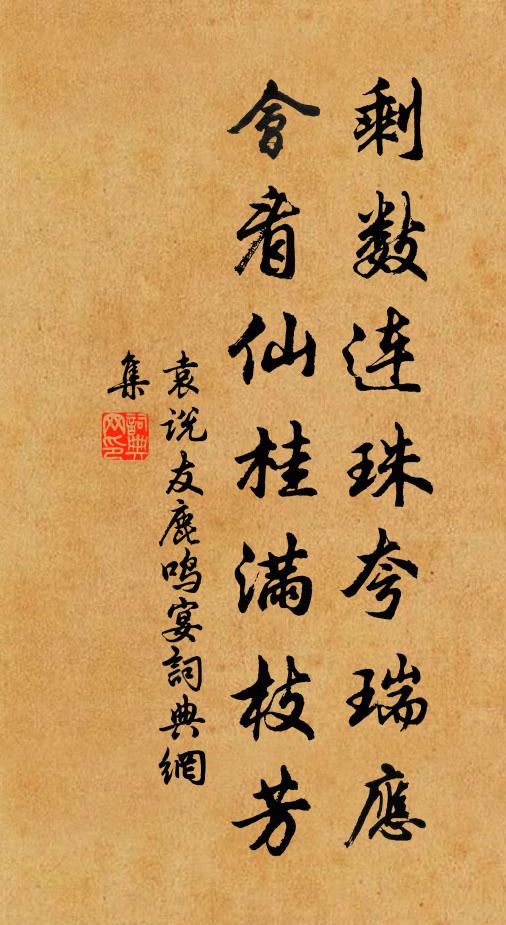 剩数连珠夸瑞應
會看仙桂满枝芳
袁说友鹿鸣宴詞典網
集
詞典网印